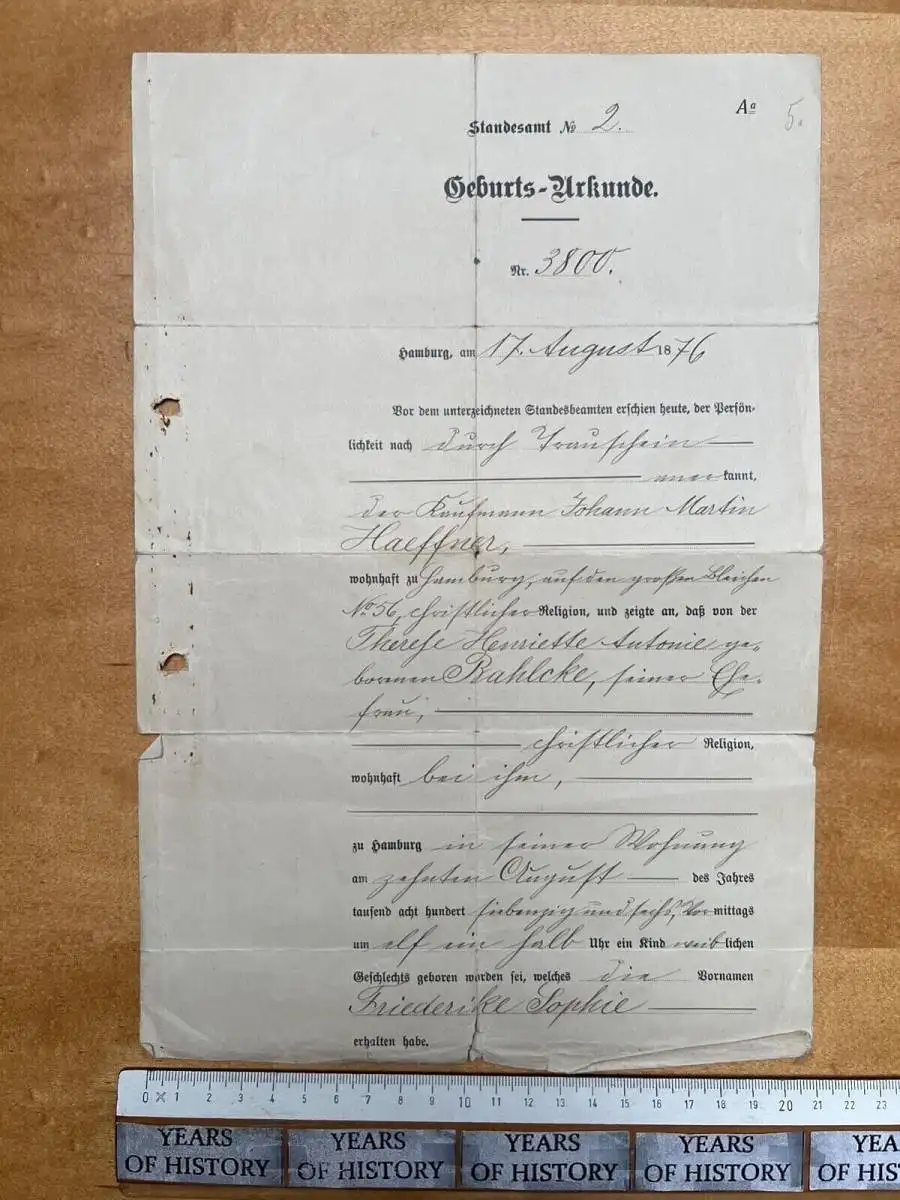 Aa 5.
Standesamt № 2.
Geburts-Urkunde.
Nr. 3800.
Hamburg, am 17. August 1876
Vor dem unterzeichneten Standesbeamten erschien heute, der Persön-
lichkeit nach durch Trauschein
anerkannt,
der Kaufmann Johann Martin
Haeffner,
wohnhaft zu Hamburg, auf den großen Bleichen
No. 56, christlicher Religion, und zeigte an, daß von der
Therese Henriette Antonie ge-
bornen Rahlcke, seiner Ehe-
frau,
christlicher Religion,
wohnhaft bei ihm,
zu Hamburg in seiner Wohnung
am zehnten August des Jahres
tausend acht hundert siebenzig und sechs, Vormittags
um elf ein halb Uhr ein Kind weiblichen
Geschlechts geboren worden sei, welches die Vornamen
Friederike Sophie
erhalten habe.
0 1 2 3 4 5 6 7 8 9 10 11 12 13 14 15 16 17 18 19 20 21 22 23
YEARS YEARS YEARS YEARS YEA
OF HISTORY OF HISTORY OF HISTORY OF HISTORY OF HIS